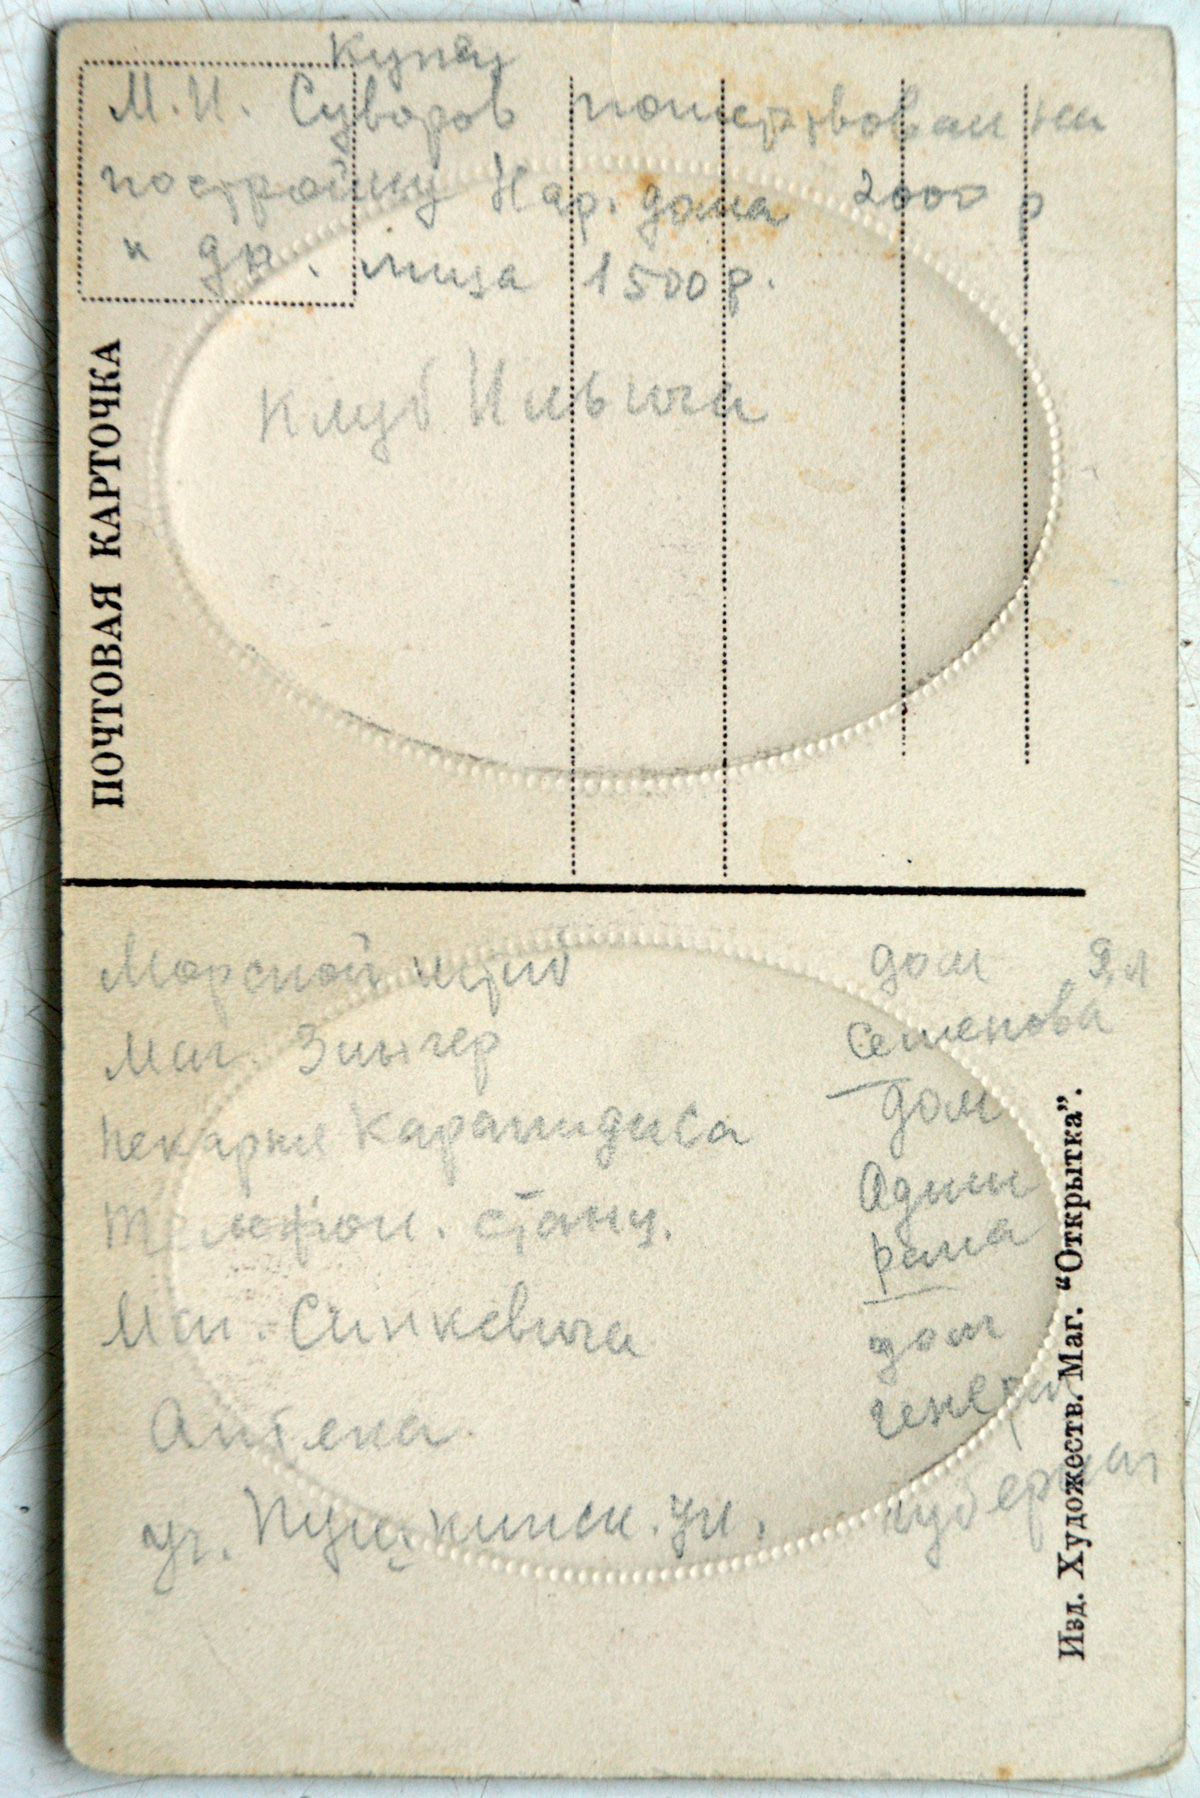 купец
М. И. Суворов пожертвовал на
постройку Нар. дома 2000 р
и др. лица 1500 р.
Клуб Ильича
ПОЧТОВАЯ КАРТОЧКА
Морской штаб
Маг. Зингер
пекарня Карамидиса
Телефон. станц.
Маг. Синкевича
Аптека.
уг. Пушкинск. ул.
дом
Семенова
дом
Адми
рала
дом
генерал
губернат
Изд. Художеств. Маг. “Открытка”.